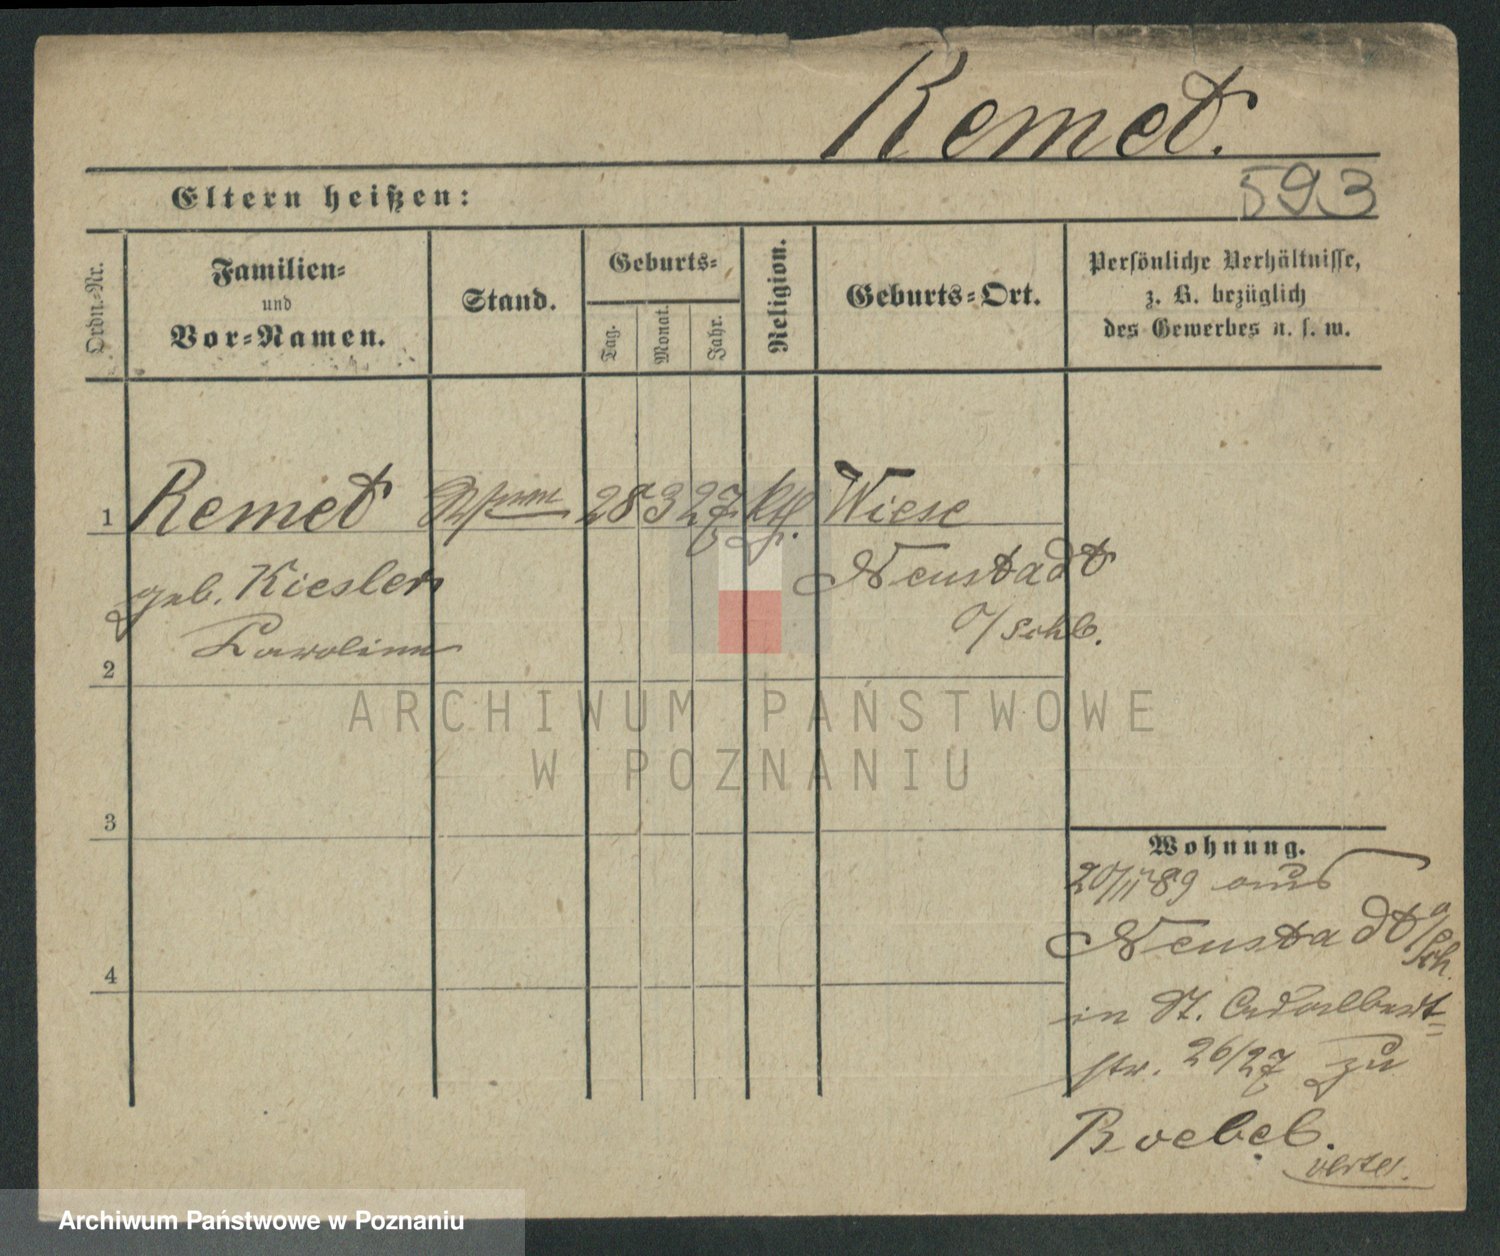 Remet.
Eltern heißen:
593
Ordn.-Nr.
Familien-
und
Vor-Namen.
Stand.
Geburts-
Tag.
Monat.
Jahr.
Religion.
Geburts-Ort.
Persönliche Verhältnisse,
z. B. bezüglich
des Gewerbes u. s. w.
1 Remet 28 3 27 kth. Wiese
geb. Kiesler Neustadt
Caroline O/Schl.
2
3
4
Wohnung.
20/11 89 aus
Neustadt O/Sch.
in St. Adalbert-
str. 26/27 zu
Roebel.
verte!
ARCHIWUM PAŃSTWOWE
W POZNANIU
Archiwum Państwowe w Poznaniu